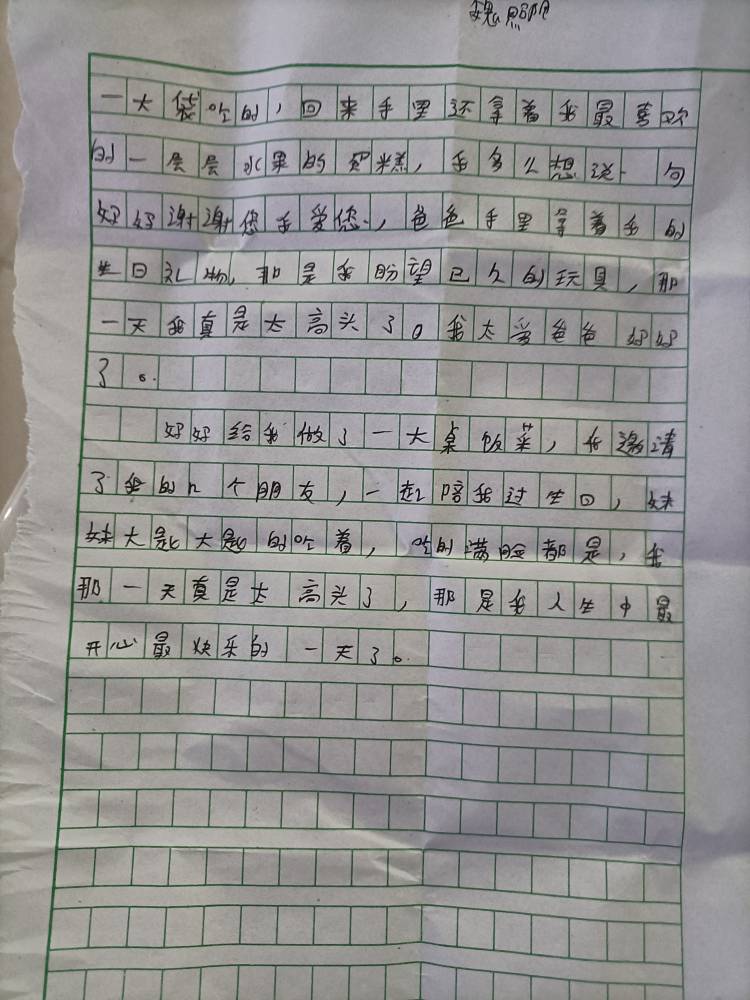 魏照
一大袋吃的，回来手里还拿着我最喜欢
的一层层水果的蛋糕，我多么想说一句
好好谢谢您我爱您，爸爸手里拿着我的
生日礼物，那是我盼望已久的玩具，那
一天我真是太高头了。我太爱爸爸好好
了。
好好给我做了一大桌饭菜，我邀请
了我的几个朋友，一起陪我过生日，妹
妹大匙大匙的吃着，吃的满脸都是，我
那一天真是太高头了，那是我人生中最
开心最快乐的一天了。